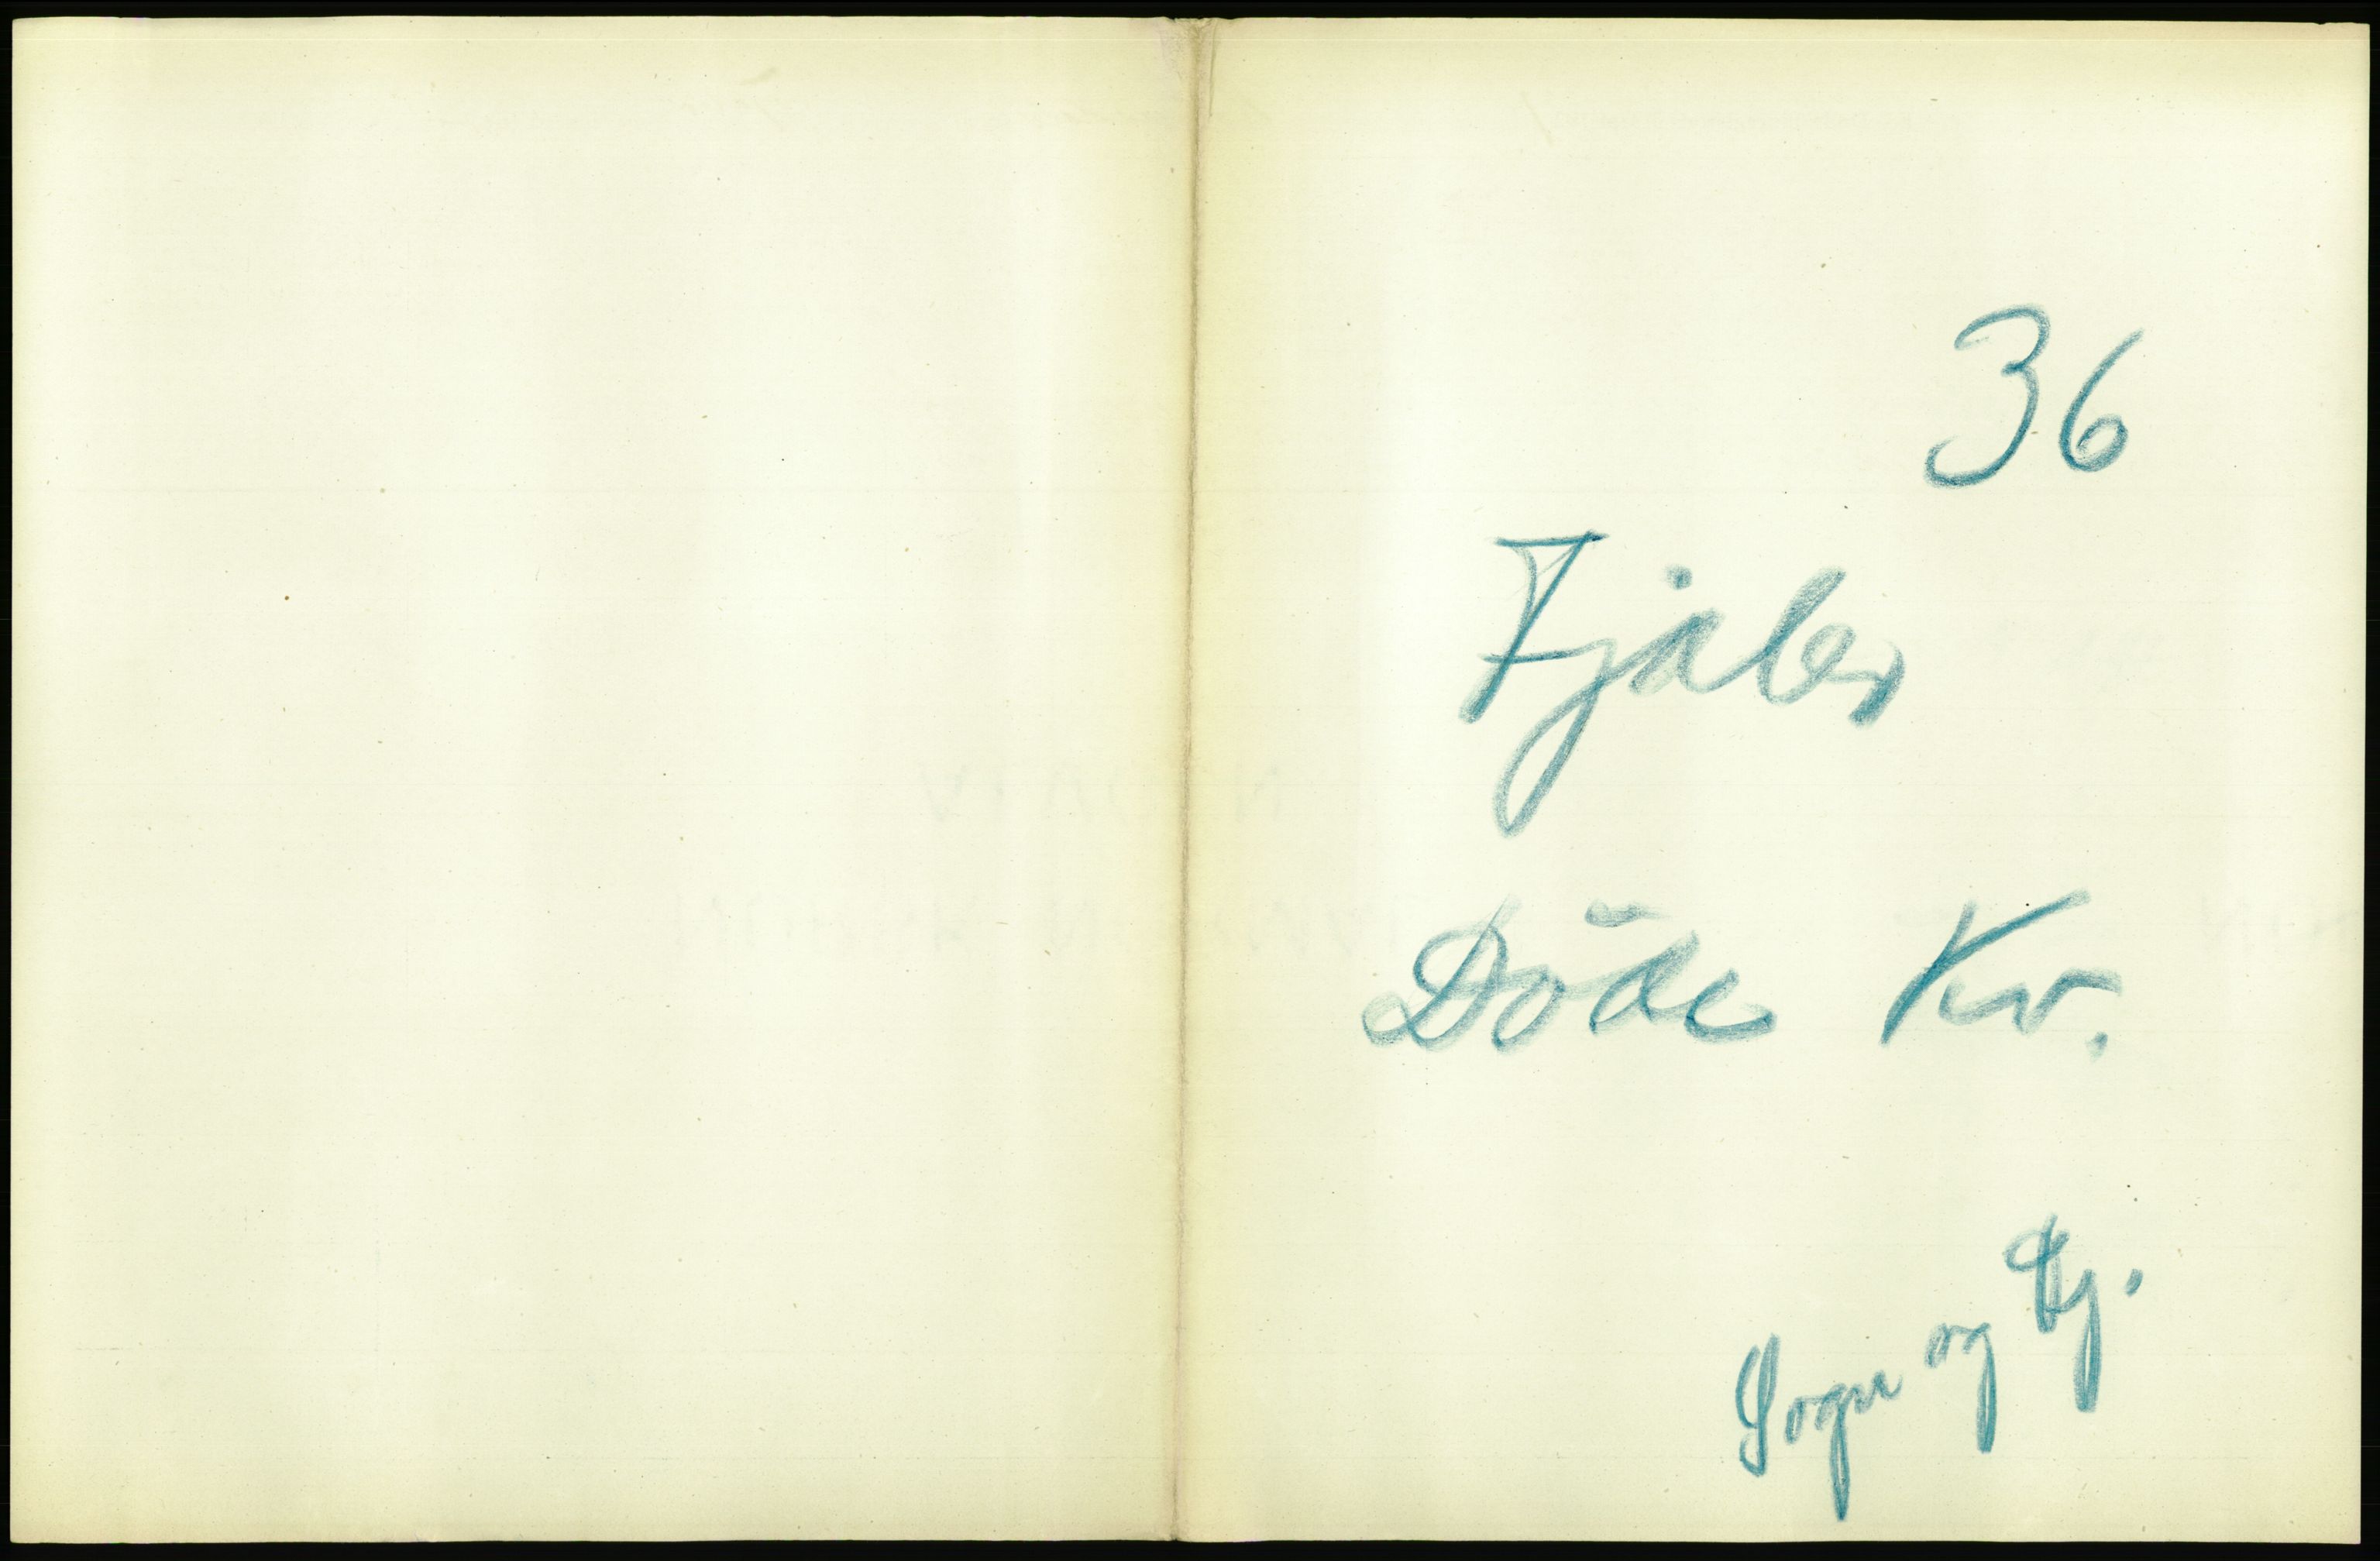 36
Fjaler
Döde Kv.
Sogn og Fj.